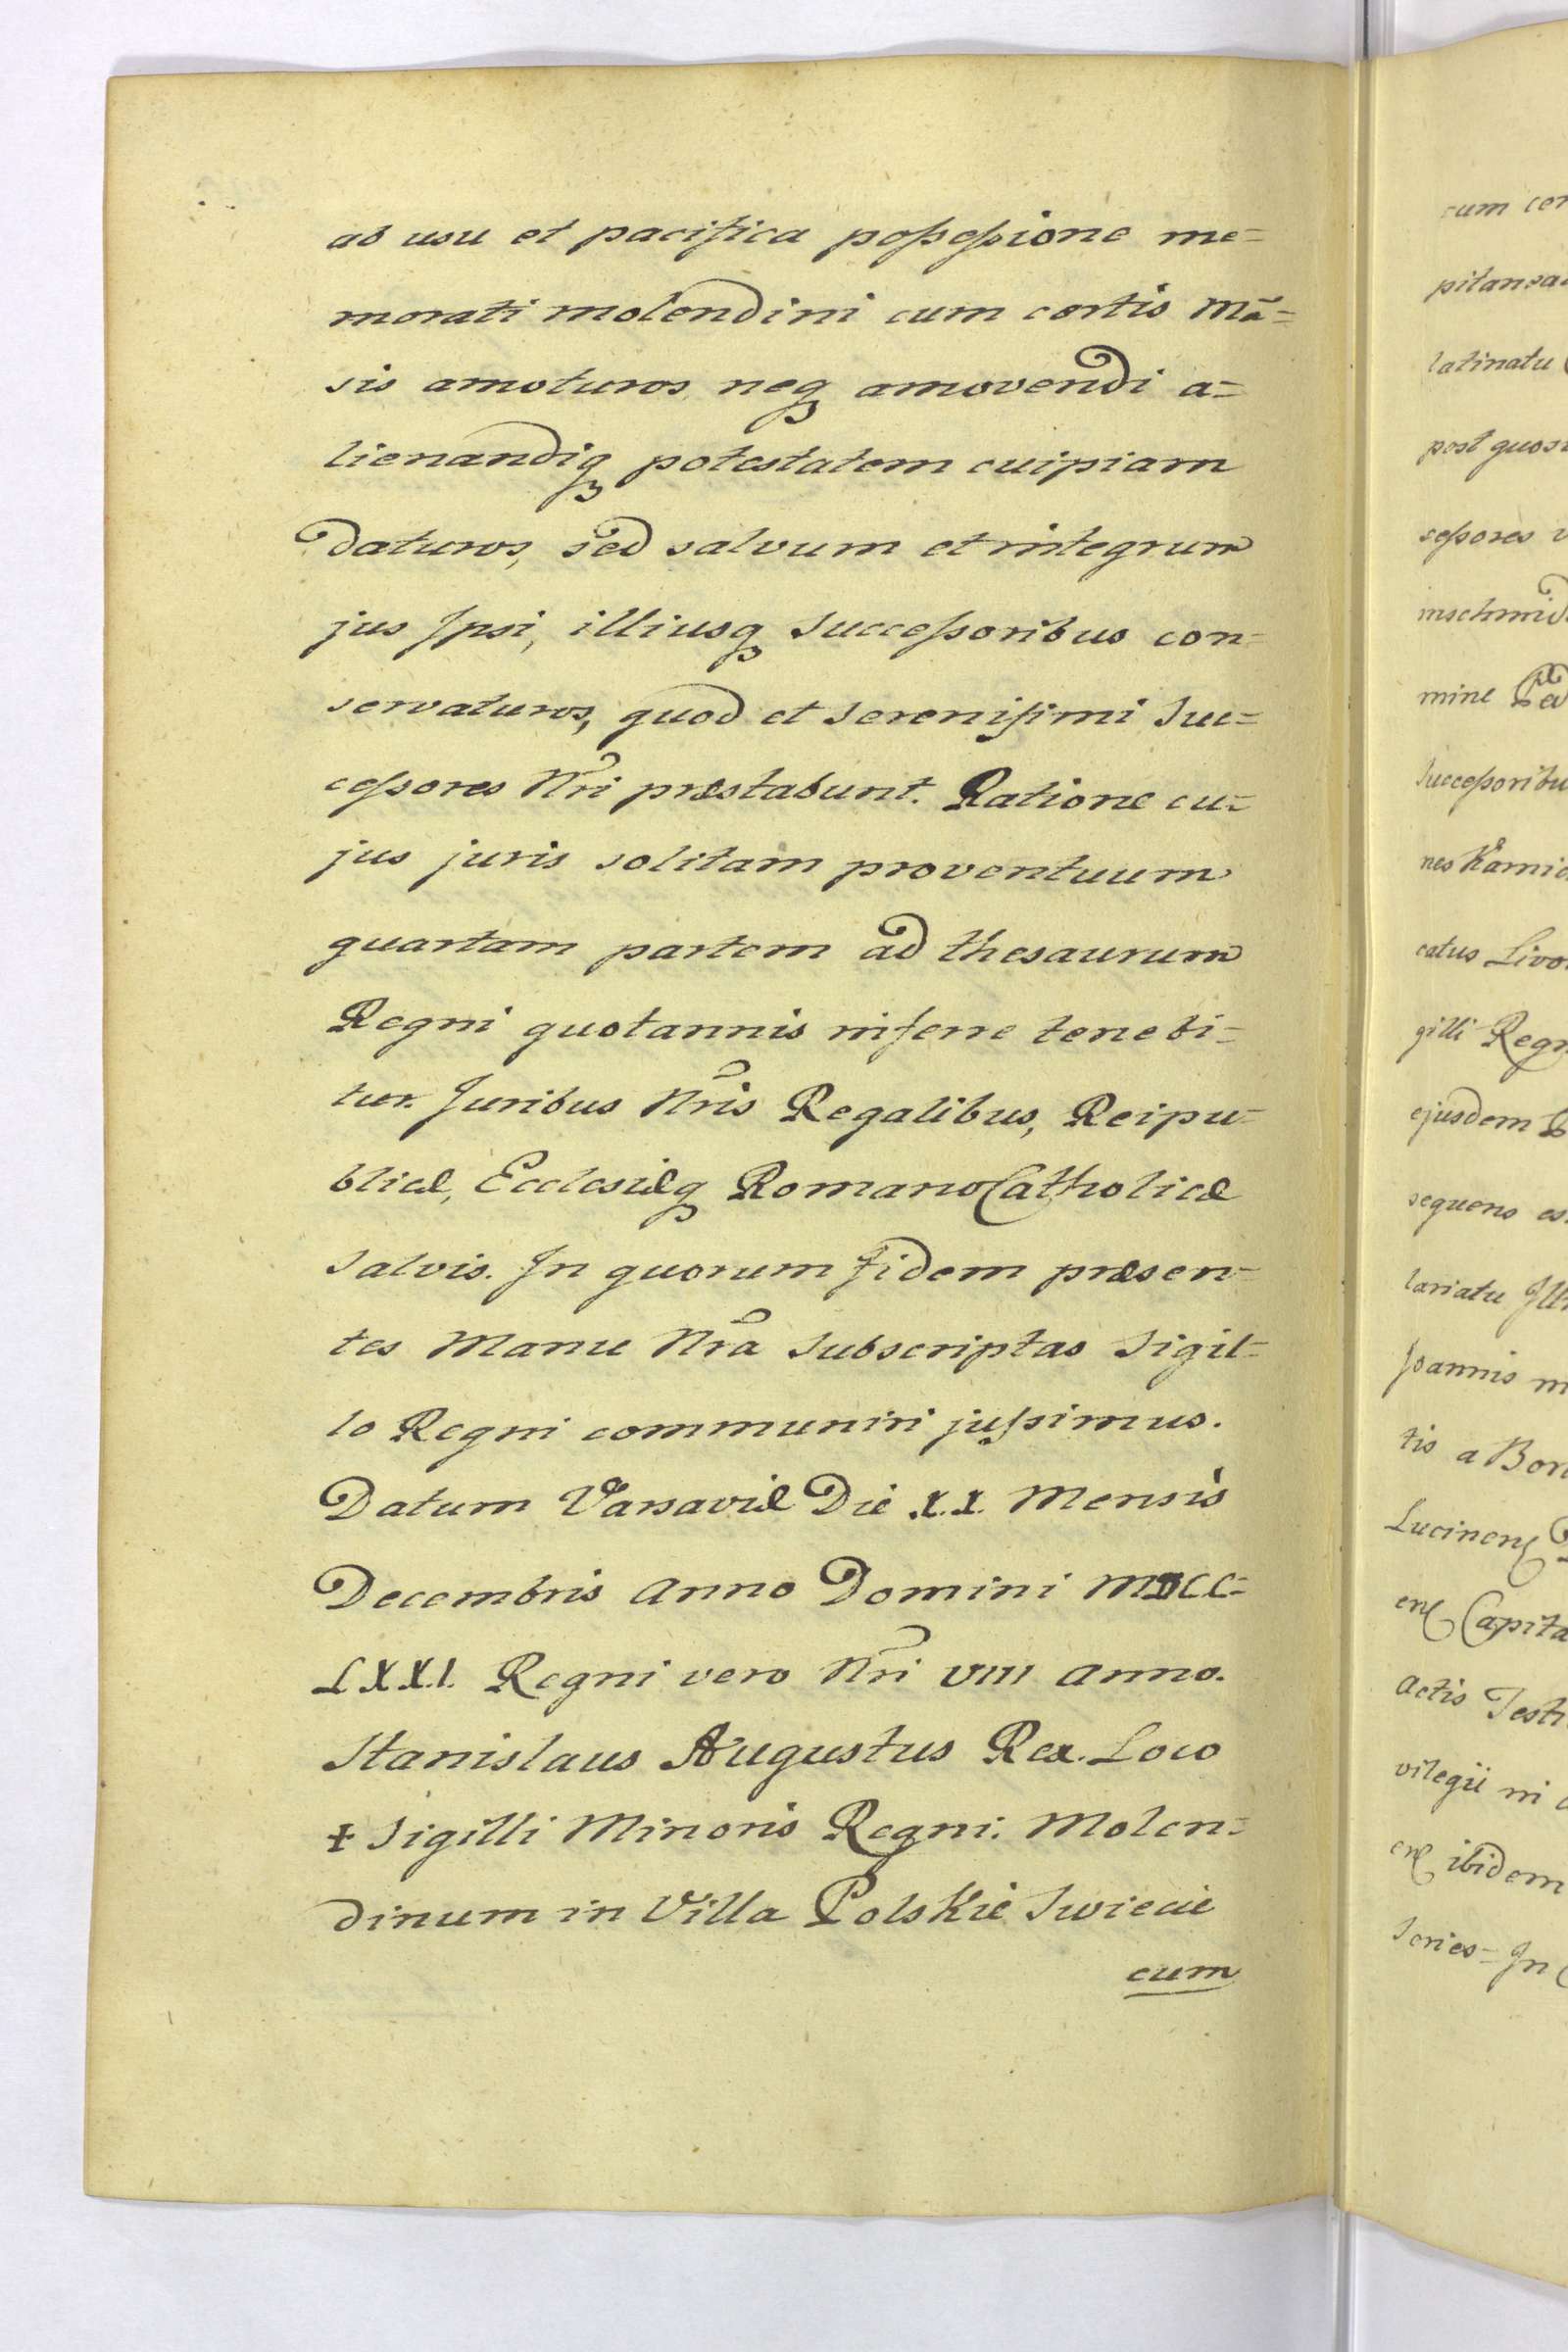 ab usu et pacifica poſseſsione me=
morati molendini cum certis Mã=
sis amoturos neqꝫ amovendi a=
lienandiqꝫ potestatem cuipiam
daturos, sed salvum et integrum
jus Ipsi, illiusqꝫ Succeſsoribus con=
servaturos, quod et Sereniſsimi Suc=
ceſsores Nr̃i præstabunt. Ratione cu=
jus juris solitam proventuum
quartam partem ad thesaurum
Regni quotannis inferre tenebi=
tur. Juribus Nr̃is Regalibus, Reipu=
blicæ, Ecclesiæqꝫ Romano Catholicæ
Salvis. In quorum fidem præsen=
tes Manu Nr̃a Subscriptas Sigil=
lo Regni communiri juſsimus.
Datum Varsaviæ Die XX. Mensis
Decembris Anno Domini MDCC=
LXXI. Regni vero Nr̃i VIII anno.
Stanislaus Augustus Rex. Loco
+ Sigilli Minoris Regni. Molen=
dinum in Villa Polskie Swiecie
cum
cum cer
pitansa
latinatu
post quos
seſsores v
inschmid
mine
Succeſsoribu
nes Karnic
catus Livo
gilli Regn
ejusdem
sequens es
lariatu Ill
Joannis m
tis a Bor
Lucinen
en Capita
Actis Testi
vilegii in
en ibidem
Series = In